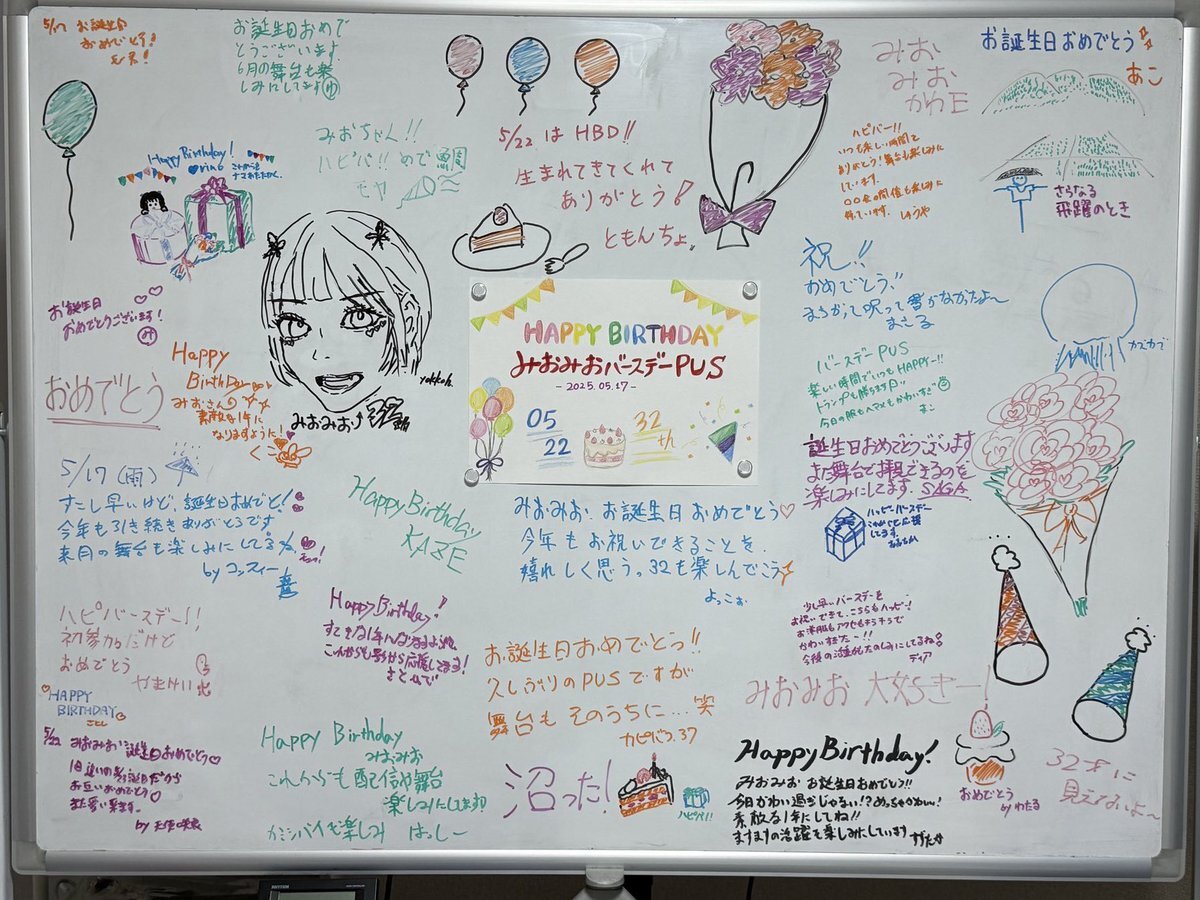 5/17 お誕生日
おめでとう!
お誕生日おめで
とうございます
6月の舞台も楽
しみにしてます
みおちゃん!!
ハピバ!! めで鯛
モヤ
5/22 は HBD!!
生まれてきてくれて
ありがとう!
ともんちょ。
みお
みお
かわE
お誕生日おめでとう
あこ
ハピバー!!
いつも楽しい時間を
ありがとう!舞台も楽しみに
しています。
〇〇会の開催も楽しみに
待っています。しゅうや
さらなる
飛躍のとき
Happy Birthday!
rino
お誕生日
おめでとうございます!
み
おめでとう
Happy
BirthDay
みおさん
素敵な1年に
なりますように!
くこ
yokkoh.
みおみお
HAPPY BIRTHDAY
みおみおバースデーPUS
- 2025.05.17 -
05
22
32
th
祝!!
おめでとう!
まちがって呪って書かなかったよ〜
まこる
カズカブ
バースデーPUS
楽しい時間でいつもHAPPYー!!
トランプも勝ちます
今日の服もヘアメもかわいすぎ
まこ
誕生日おめでとうございます
また舞台で拝見できるのを
楽しみにしてます。SAGA
ハッピーバースデー
これからも応援
してます。
5/17 (雨)
すこし早いけど、誕生日おめでと!
今年も引き続きありがとうです
来月の舞台も楽しみにしてるね。
by コッフィー
Happy Birthday
KAZE
みおみお、お誕生日おめでとう♡
今年もお祝いできることを、
嬉しく思う。32も楽しんでこう
よっこぉ
ハピバースデー!!
初参加だけど
おめでとう
やまけい
Happy Birthday!
すてきな1年になりますように
これからも影から応援してます!
お誕生日おめでとう!!
久しぶりのPUSですが
舞台もそのうちに…笑
カピバラ.37
少し早いバースデーを
お祝いできて、こちらもハッピー!
お洋服もアクセもキラキラで
かわいすぎたー!!
今後の活動もたのしみにしてるね
ディア
みおみお 大好きー!
HAPPY
BIRTHDAY
さとし
5/22 みおみお誕生日おめでとう♡
1日違いの誕生日だから
お互いおめでとう♡
また会い来ます。
by 天使咲衣
Happy Birthday
みおみお
これからも配信や舞台
楽しみにしてます!
カミシバイも楽しみ はっしー
沼った!
ハピバ!!
Happy Birthday!
みおみお お誕生日おめでとう!!
今日かわい過ぎじゃない!?めっちゃかわいい!
素敵な1年にしてね!!
ますますの活躍を楽しみにしています
おめでとう
by わたる
32才に
見えないよ〜
RHYTHM